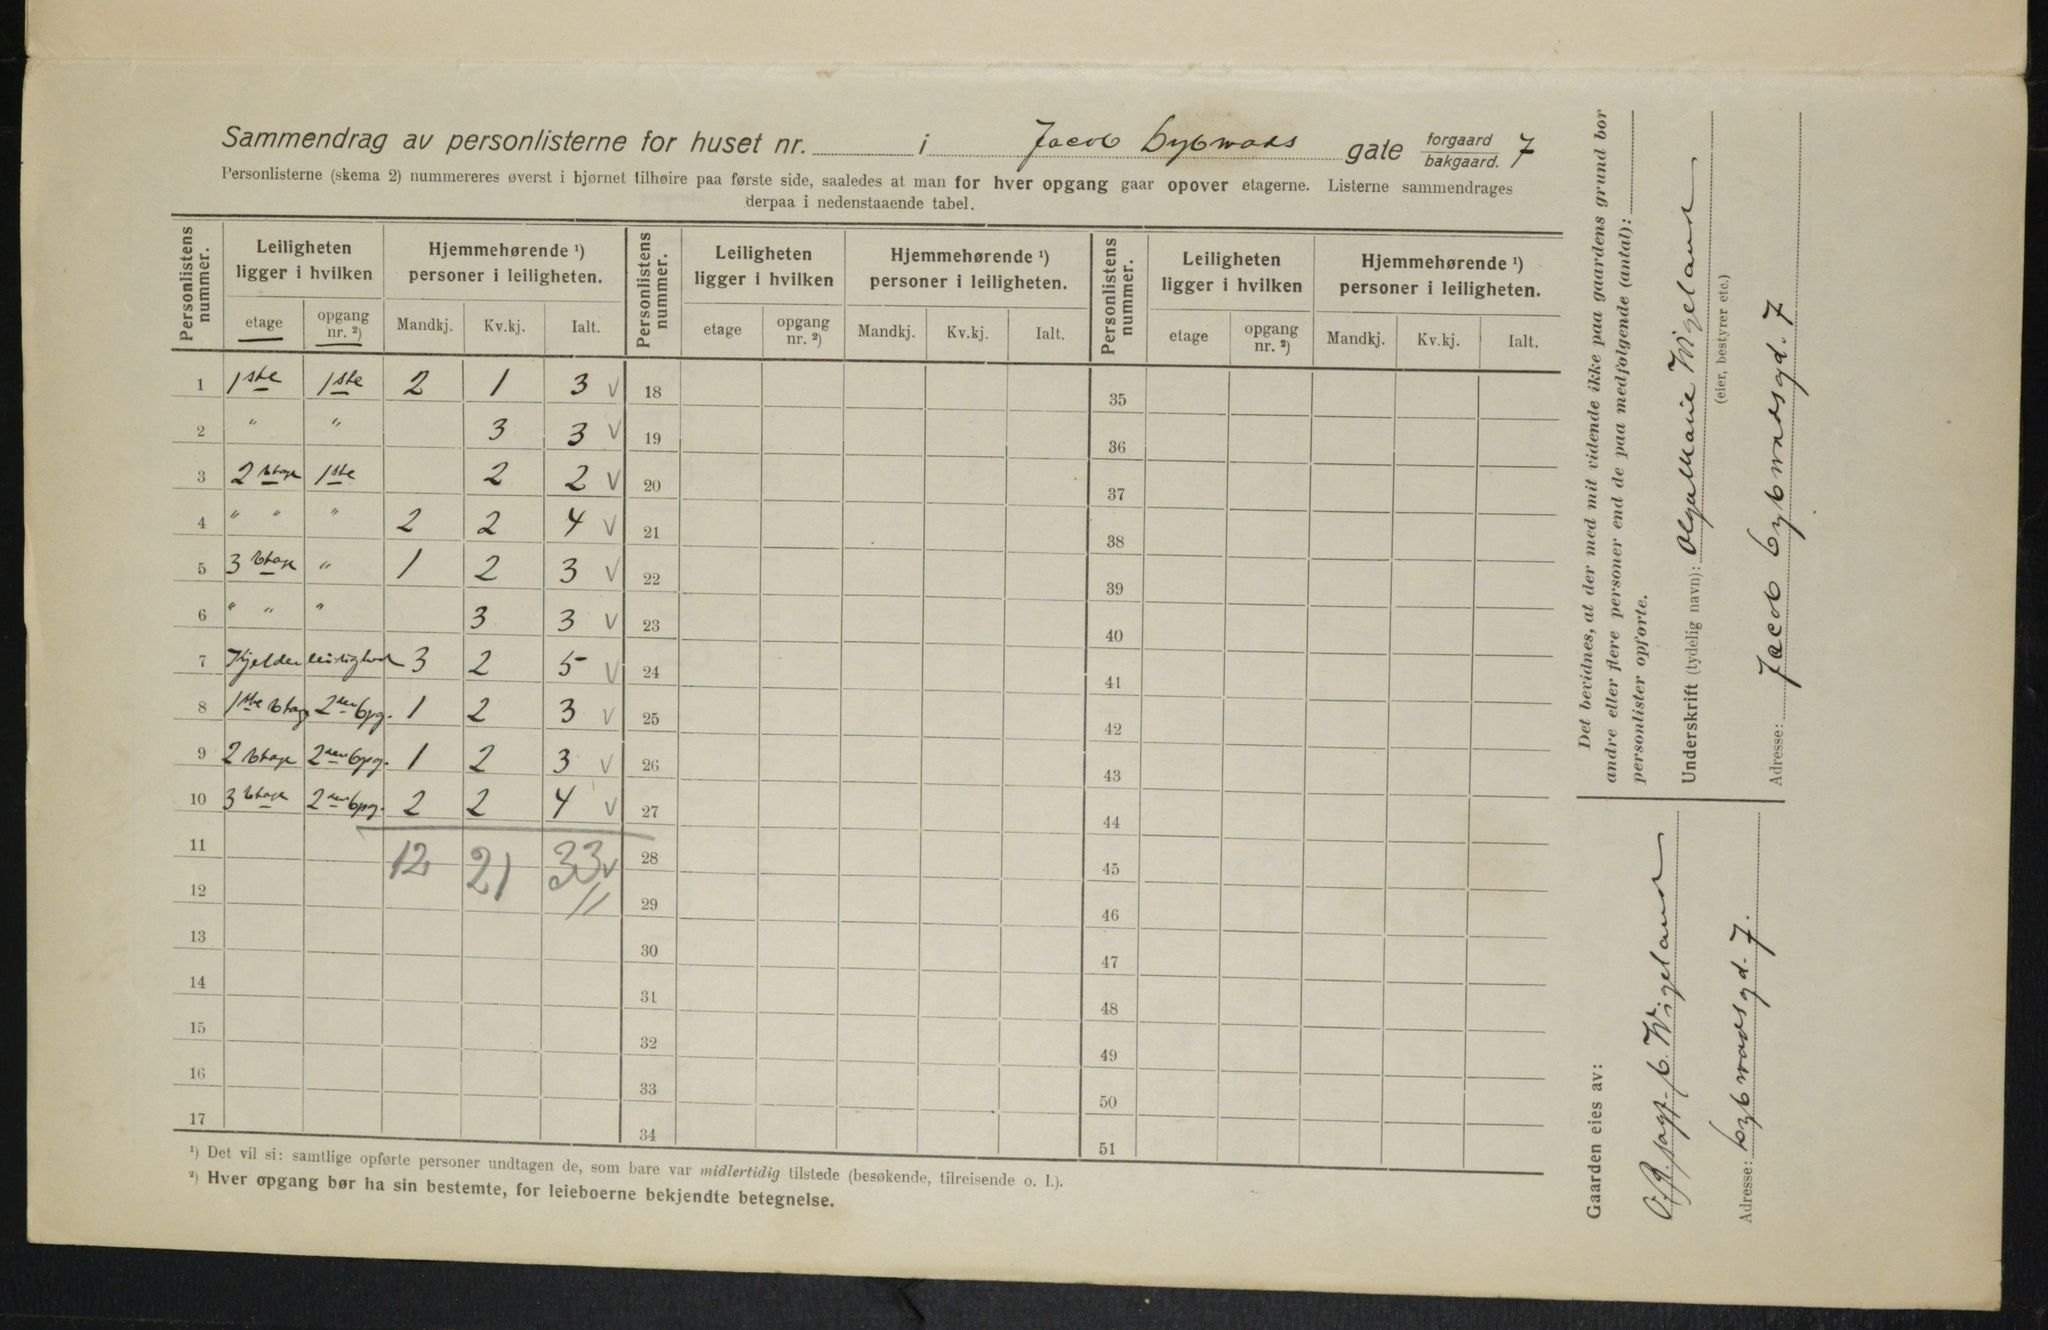 Sammendrag av personlisterne for huset nr. i Jacob Dybwads gate forgaard bakgaard. 7
Personlisterne (skema 2) nummereres øverst i hjørnet tilhøire paa første side, saaledes at man for hver opgang gaar opover etagerne. Listerne sammendrages
derpaa i nedenstaaende tabel.
Personlistens nummer. Leiligheten ligger i hvilken Hjemmehørende ¹) personer i leiligheten. Personlistens nummer. Leiligheten ligger i hvilken Hjemmehørende ¹) personer i leiligheten. Personlistens nummer. Leiligheten ligger i hvilken Hjemmehørende ¹) personer i leiligheten.
etage opgang nr. ²) Mandkj. Kv.kj. Ialt. etage opgang nr. ²) Mandkj. Kv.kj. Ialt. etage opgang nr. ²) Mandkj. Kv.kj. Ialt.
1 1ste 1ste 2 1 3 v 18 35
2 " " 3 3 v 19 36
3 2 etage 1ste 2 2 v 20 37
4 " " " 2 2 4 v 21 38
5 3 etage " 1 2 3 v 22 39
6 " " " 3 3 v 23 40
7 Kjelderleilighed 3 2 5 v 24 41
8 1ste etage 2den Opg. 1 2 3 v 25 42
9 2 etage 2den Opg. 1 2 3 v 26 43
10 3 etage 2den Opg. 2 2 4 v 27 44
11 12 21 33 v 28 45
12 29 46
13 30 47
14 31 48
15 32 49
16 33 50
17 34 51
¹) Det vil si: samtlige opførte personer undtagen de, som bare var midlertidig tilstede (besøkende, tilreisende o. l.).
²) Hver opgang bør ha sin bestemte, for leieboerne bekjendte betegnelse.
Det bevidnes, at der med mit vidende ikke paa gaardens grund bor
andre eller flere personer end de paa medfølgende (antal):
personlister opførte.
Underskrift (tydelig navn): Olga Marie Wigeland
(eier, bestyrer etc.)
Adresse: Jacob Dybwadsgd. 7
Gaarden eies av:
Wigeland
Adresse: Dybwadsgd. 7.